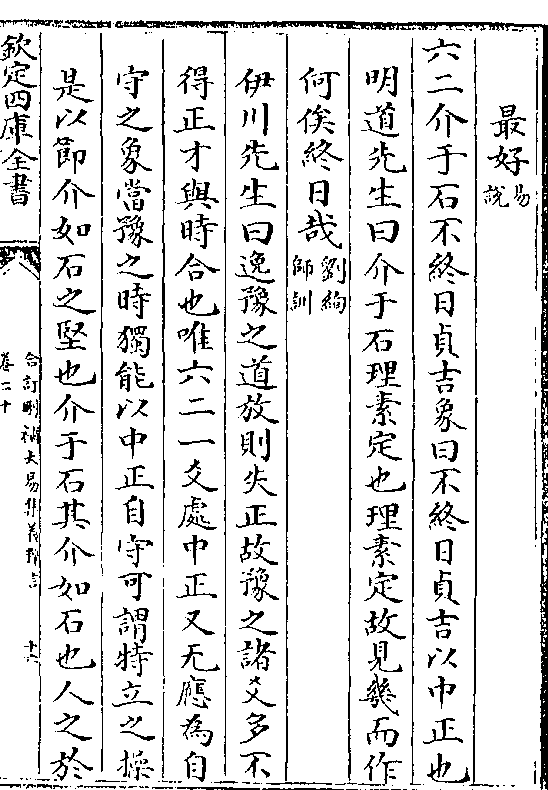 最好易說
六二介于石不終日貞吉象曰不終日貞吉以中正也
明道先生曰介于石理素定也理素定故見幾而作
何俟終日哉劉絢師訓
伊川先生曰逸豫之道放則失正故豫之諸爻多不
得正才與時合也唯六二一爻處中正又无應為自
守之象當豫之時獨能以中正自守可謂特立之操
是以節介如石之堅也介于石其介如石也人之於
欽定四庫全書
合訂刪補大易集義粹言
卷二十
十六